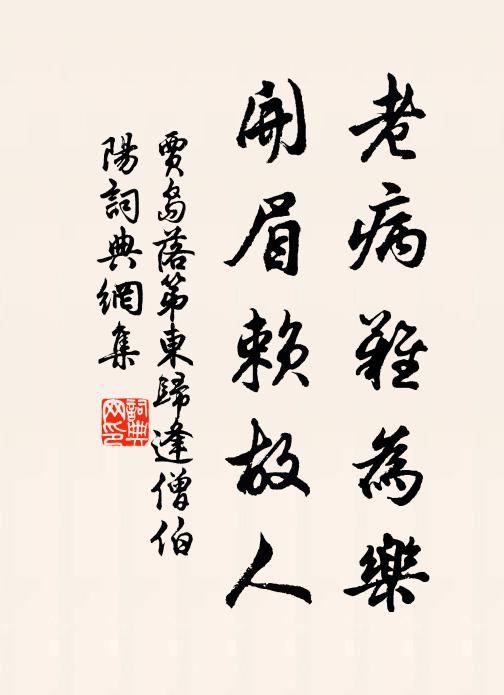 老病難為樂
開眉賴故人
賈島落第東歸逢僧伯
陽詞典網集
詞典
网印